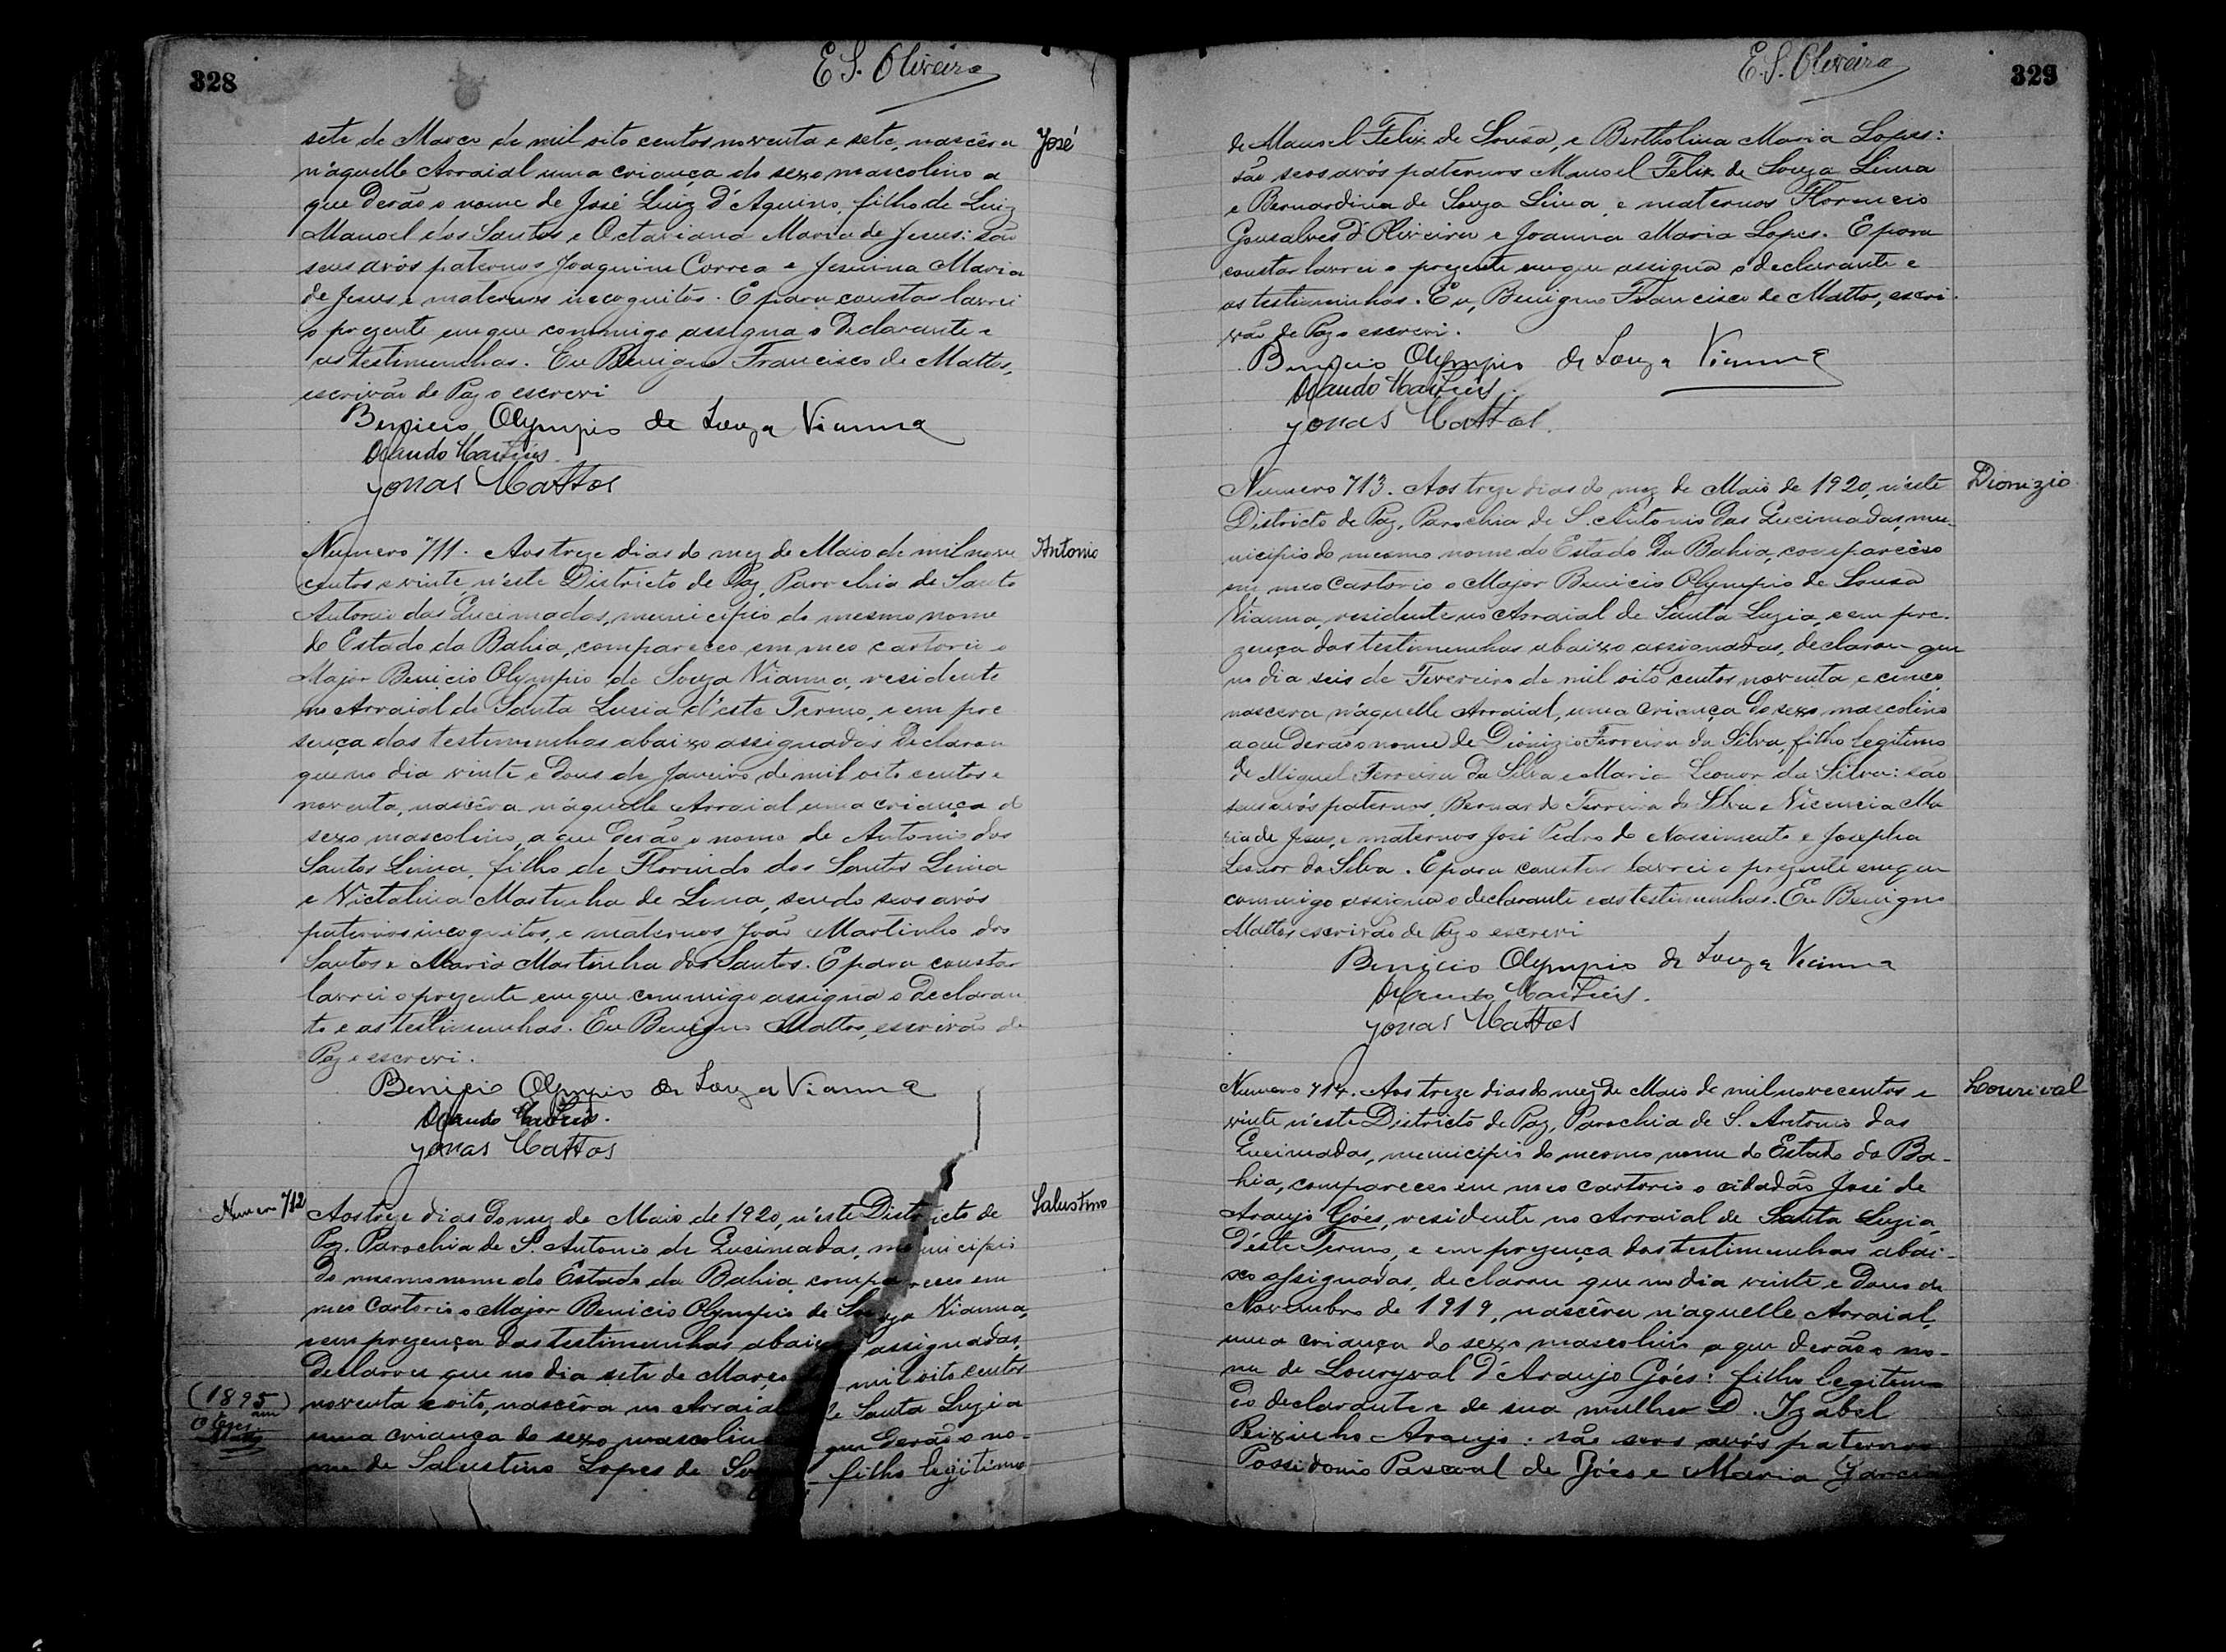 328
E S. Oliveira
sete de Março de mil oito centos noventa e sete, nascêra
José
n'aquelle Arraial uma criança do sexo mascolino a
que derão o nome de José Luiz d'Aquino, filho de Luiz
Manoel dos Santos e Octaviana Maria de Jesus: são
seus avós paternos Joaquim Correa e Jesuina Maria
de Jesus e maternos incognitos. E para constar lavrei
o prezente em que commigo assigna o declarante e
as testimunhas. Eu Benigno Francisco de Mattos,
escrivão de Paz o escrevi
Benicio Olympio de Souza Vianna
Orlando Martins
Jonas Mattos
Numero 711. Aos treze dias do mez de Maio de mil nove
Antonio
centos e vinte, n'este Districto de Paz, Parochia de Santo
Antonio das Queimadas, municipio do mesmo nome
do Estado da Bahia, compareceo em meo cartorio o
Major Benicio Olympio de Souza Vianna, residente
no Arraial de Santa Lusia d'este Termo, e em pre
sença das testimunhas abaixo assignadas declarou
que no dia vinte e dous de Janeiro de mil oito centos e
noventa, nascêra n'aquelle Arraial uma criança do
sexo mascolino, a que derão o nome de Antonio dos
Santos Lima, filho de Florindo dos Santos Lima
e Victalina Martinha de Lima, sendo seos avós
paternos incognitos, e maternos João Martinho dos
Santos e Maria Martinha dos Santos. E para constar
lavrei o prezente em que commigo assigna o declaran
te e as testimunhas. Eu Benigno Mattos, escrivão de
Paz o escrevi.
Benicio Olympio de Souza Vianna
Orlando Martins.
Jonas Mattos
Numero 712
Aos treze dias do mez de Maio de 1920, n'este Districto de
Salustino
Paz, Parochia de S. Antonio de Queimadas, municipio
do mesmo nome do Estado da Bahia, compareceo em
meo Cartorio o Major Benicio Olympio de Souza Vianna,
e em prezença das testimunhas abaixo assignadas,
declarou que no dia sete de Março de mil oito centos
(1895)
noventa e oito, nascêra no Arraial de Santa Luzia
uma criança do sexo mascolino que derão o no-
me de Salustino Lopes de filho legitimo
E. S. Oliveira
329
de Manoel Felix de Sousa, e Bertholina Maria Lopes:
são seos avós paternos Manoel Felix de Souza Lima
e Bernardina de Souza Lima, e maternos Florencio
Gonsalves d'Oliveira e Joanna Maria Lopes. E para
constar lavrei o prezente em que assigna o declarante e
as testimunhas. Eu, Benigno Francisco de Mattos, escri-
vão de Paz o escrevi.
Benicio Olympio de Souza Vianna
Orlando Martins.
Jonas Mattos.
Numero 713. Aos treze dias do mez de Maio de 1920, n'este
Dionizio
Districto de Paz, Parochia de S. Antonio das Queimadas, mu-
nicipio do mesmo nome do Estado da Bahia, compareceo
em meo Cartorio o Major Benicio Olympio de Sousa
Vianna, residente no Arraial de Santa Luzia, e em pre-
zença das testimunhas abaixo assignadas, declarou que
no dia seis de Fevereiro de mil oito centos noventa e cinco
nascera n'aquelle Arraial, uma criança do sexo mascolino
a que derão o nome de Dionizio Ferreira da Silva, filho legitimo
de Miguel Ferreira da Silva e Maria Leonor da Silva: são
seus avós paternos Bernardo Ferreira da Silva e Vicencia Ma
ria de Jesus, e maternos José Pedro do Nascimento e Josepha
Leonor da Silva. E para constar lavrei o prezente em que
commigo assigna o declarante e as testimunhas. Eu Benigno
Mattos escrivão de Paz o escrevi
Benicio Olympio de Souza Vianna
Orlando Martins.
Jonas Mattos
Numero 714. Aos treze dias do mez de Maio de mil novecentos e
Lourival
vinte n'este Districto de Paz, Parochia de S. Antonio das
Queimadas, municipio do mesmo nome do Estado da Ba-
hia, compareceo em meo cartorio o cidadão José de
Araujo Góes, residente no Arraial de Santa Luzia,
d'este Termo, e em prezença das testimunhas abai-
xo assignadas, declarou que no dia vinte e dous de
Novembro de 1919, nascêra n'aquelle Arraial,
uma criança do sexo mascolino a que derão o no-
me de Louryval d'Araujo Góes: filho legitimo
do declarante e de sua mulher D. Izabel
Peixinho Araujo: são seos avós paternos
Possidonio Pascoal de Góes e Maria